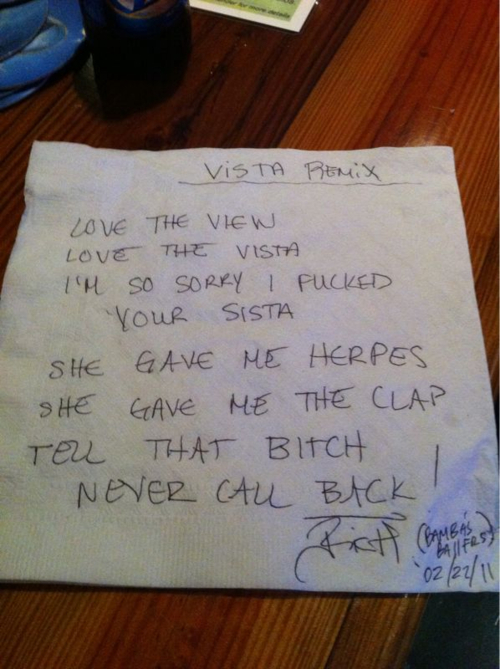 VISTA REMIX
LOVE THE VIEW
LOVE THE VISTA
I'M SO SORRY I FUCKED
YOUR SISTA
SHE GAVE ME HERPES
SHE GAVE ME THE CLAP
TELL THAT BITCH
NEVER CALL BACK!
(BAMBA'S
BALLERS)
02/22/11